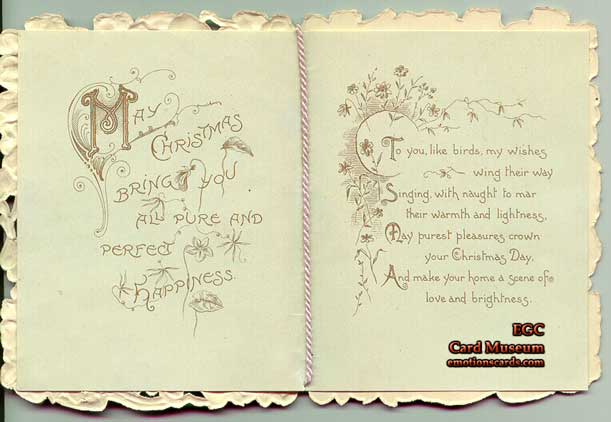 MAY
CHRISTMAS
BRING YOU
ALL PURE AND
PERFECT
HAPPINESS.
To you, like birds, my wishes
wing their way
Singing, with naught to mar
their warmth and lightness,
May purest pleasures crown
your Christmas Day,
And make your home a scene of
love and brightness.
EGC
Card Museum
emotionscards.com